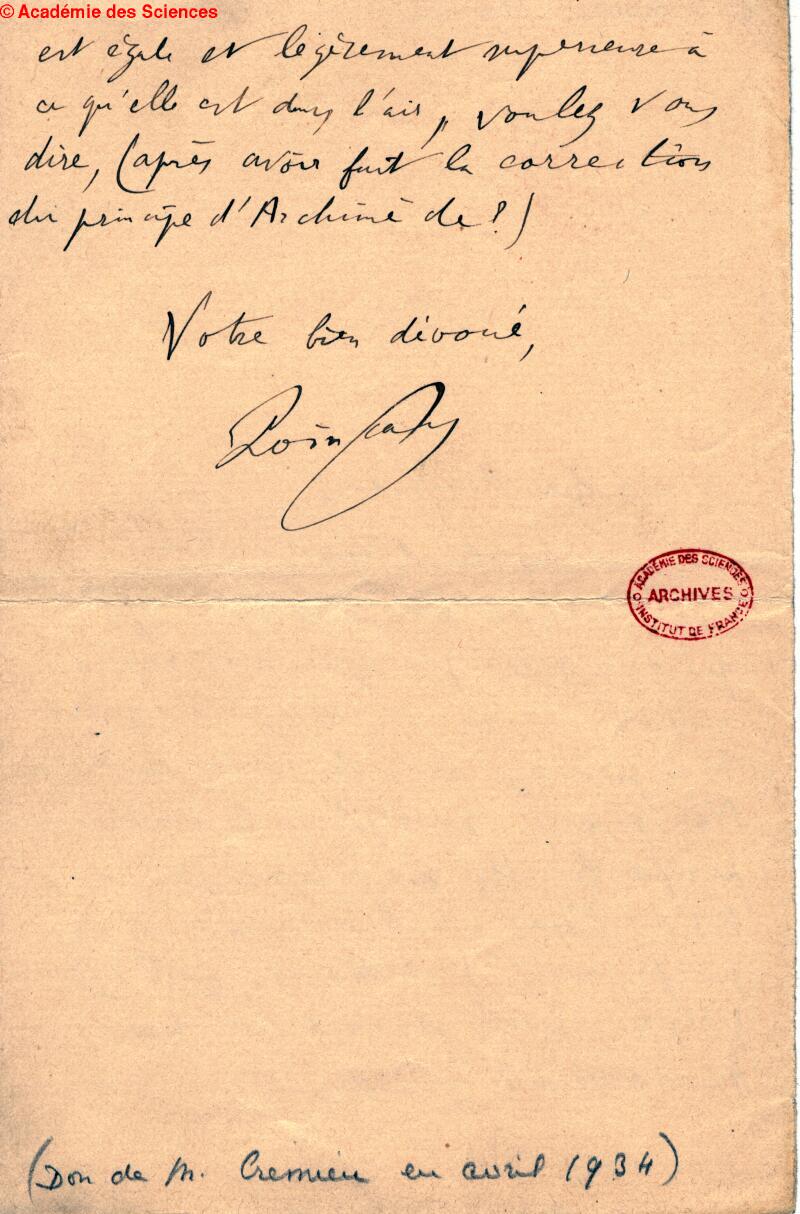 © Académie des Sciences
est égale et légèrement supérieure à
ce qu'elle est dans l'air, " voulez vous
dire, (après avoir fait la correction
du principe d'Archimède?)
Votre bien dévoué,
Poincaré
ACADÉMIE DES SCIENCES
ARCHIVES
INSTITUT DE FRANCE
(Don de M. Cremieu en avril 1934)